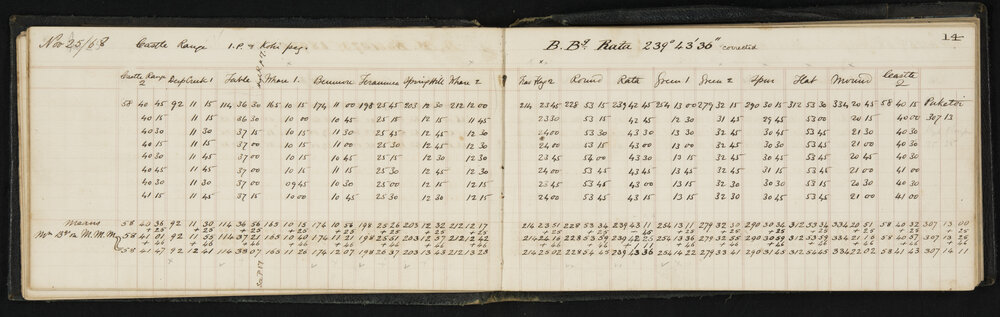 Nov 25/68 Castle Range I.P. & Kohi peg. B. Bg. Rata 239° 43' 36" corrected 14
Castle Range 2 Deep Creek 1 Table Whare 1. Benmore Teramua Spring Hill Whare 2 Round Rata Green 1 Green 2 Spur Flat Mound Castle 2
58 40 45 92 11 15 114 36 30 165 10 15 174 11 00 198 25 45 203 12 30 212 12 00 214 23 45 228 53 15 239 42 45 254 13 00 279 32 15 290 30 15 312 53 30 334 20 45 58 40 15 Puketoi
40 15 11 15 36 30 10 00 10 45 25 15 12 15 11 45 23 30 53 15 42 45 12 30 31 45 29 45 53 00 20 15 40 00 307 13
40 30 11 30 37 15 10 15 11 30 25 45 12 45 12 30 24 00 53 30 43 30 13 30 32 45 30 45 53 45 21 30 40 30
40 15 11 15 37 00 10 15 11 00 25 30 12 45 12 30 24 00 53 15 43 00 13 00 32 45 30 30 53 45 21 00 40 30
40 30 11 45 37 00 10 15 10 45 25 15 12 30 12 30 23 45 54 00 43 30 13 15 32 45 30 45 53 45 20 45 40 30
40 45 11 45 37 00 10 15 10 45 25 30 12 30 12 30 24 00 53 45 43 45 13 45 32 45 31 15 53 45 21 00 41 00
40 30 11 30 37 15 09 45 10 30 25 00 12 15 12 15 23 45 53 45 43 00 13 15 32 30 30 30 53 15 20 30 40 30
41 15 11 45 37 15 10 00 10 30 25 00 12 45 12 15 24 00 53 45 43 45 13 15 32 30 30 45 53 45 21 00 41 00
means 58 40 36 92 11 30 114 36 56 165 10 15 174 10 58 198 25 26 203 12 32 212 12 17 214 23 51 228 53 34 239 43 11 254 13 11 279 32 30 290 30 34 312 53 34 334 20 51 58 40 32 307 13 00
+ 25 + 25 + 25 + 25 + 25 + 25 + 25 + 25 + 25 + 25 + 25
58 41 01 92 11 55 114 37 21 165 10 40 174 11 21 198 25 51 203 12 57 212 12 42 214 24 16 228 53 59 254 13 36 279 32 55 290 30 59 312 53 59 334 21 16 58 40 57 307 13 25
+ 46 + 46 + 46 + 46 + 46 + 46 + 46 + 46 + 46 + 46 + 46
58 41 47 92 12 41 114 38 07 165 11 26 174 12 07 198 26 37 203 13 43 212 13 28 214 25 02 228 54 45 239 43 36 254 14 22 279 33 41 290 31 45 312 54 45 334 22 02 58 41 43 307 14 11